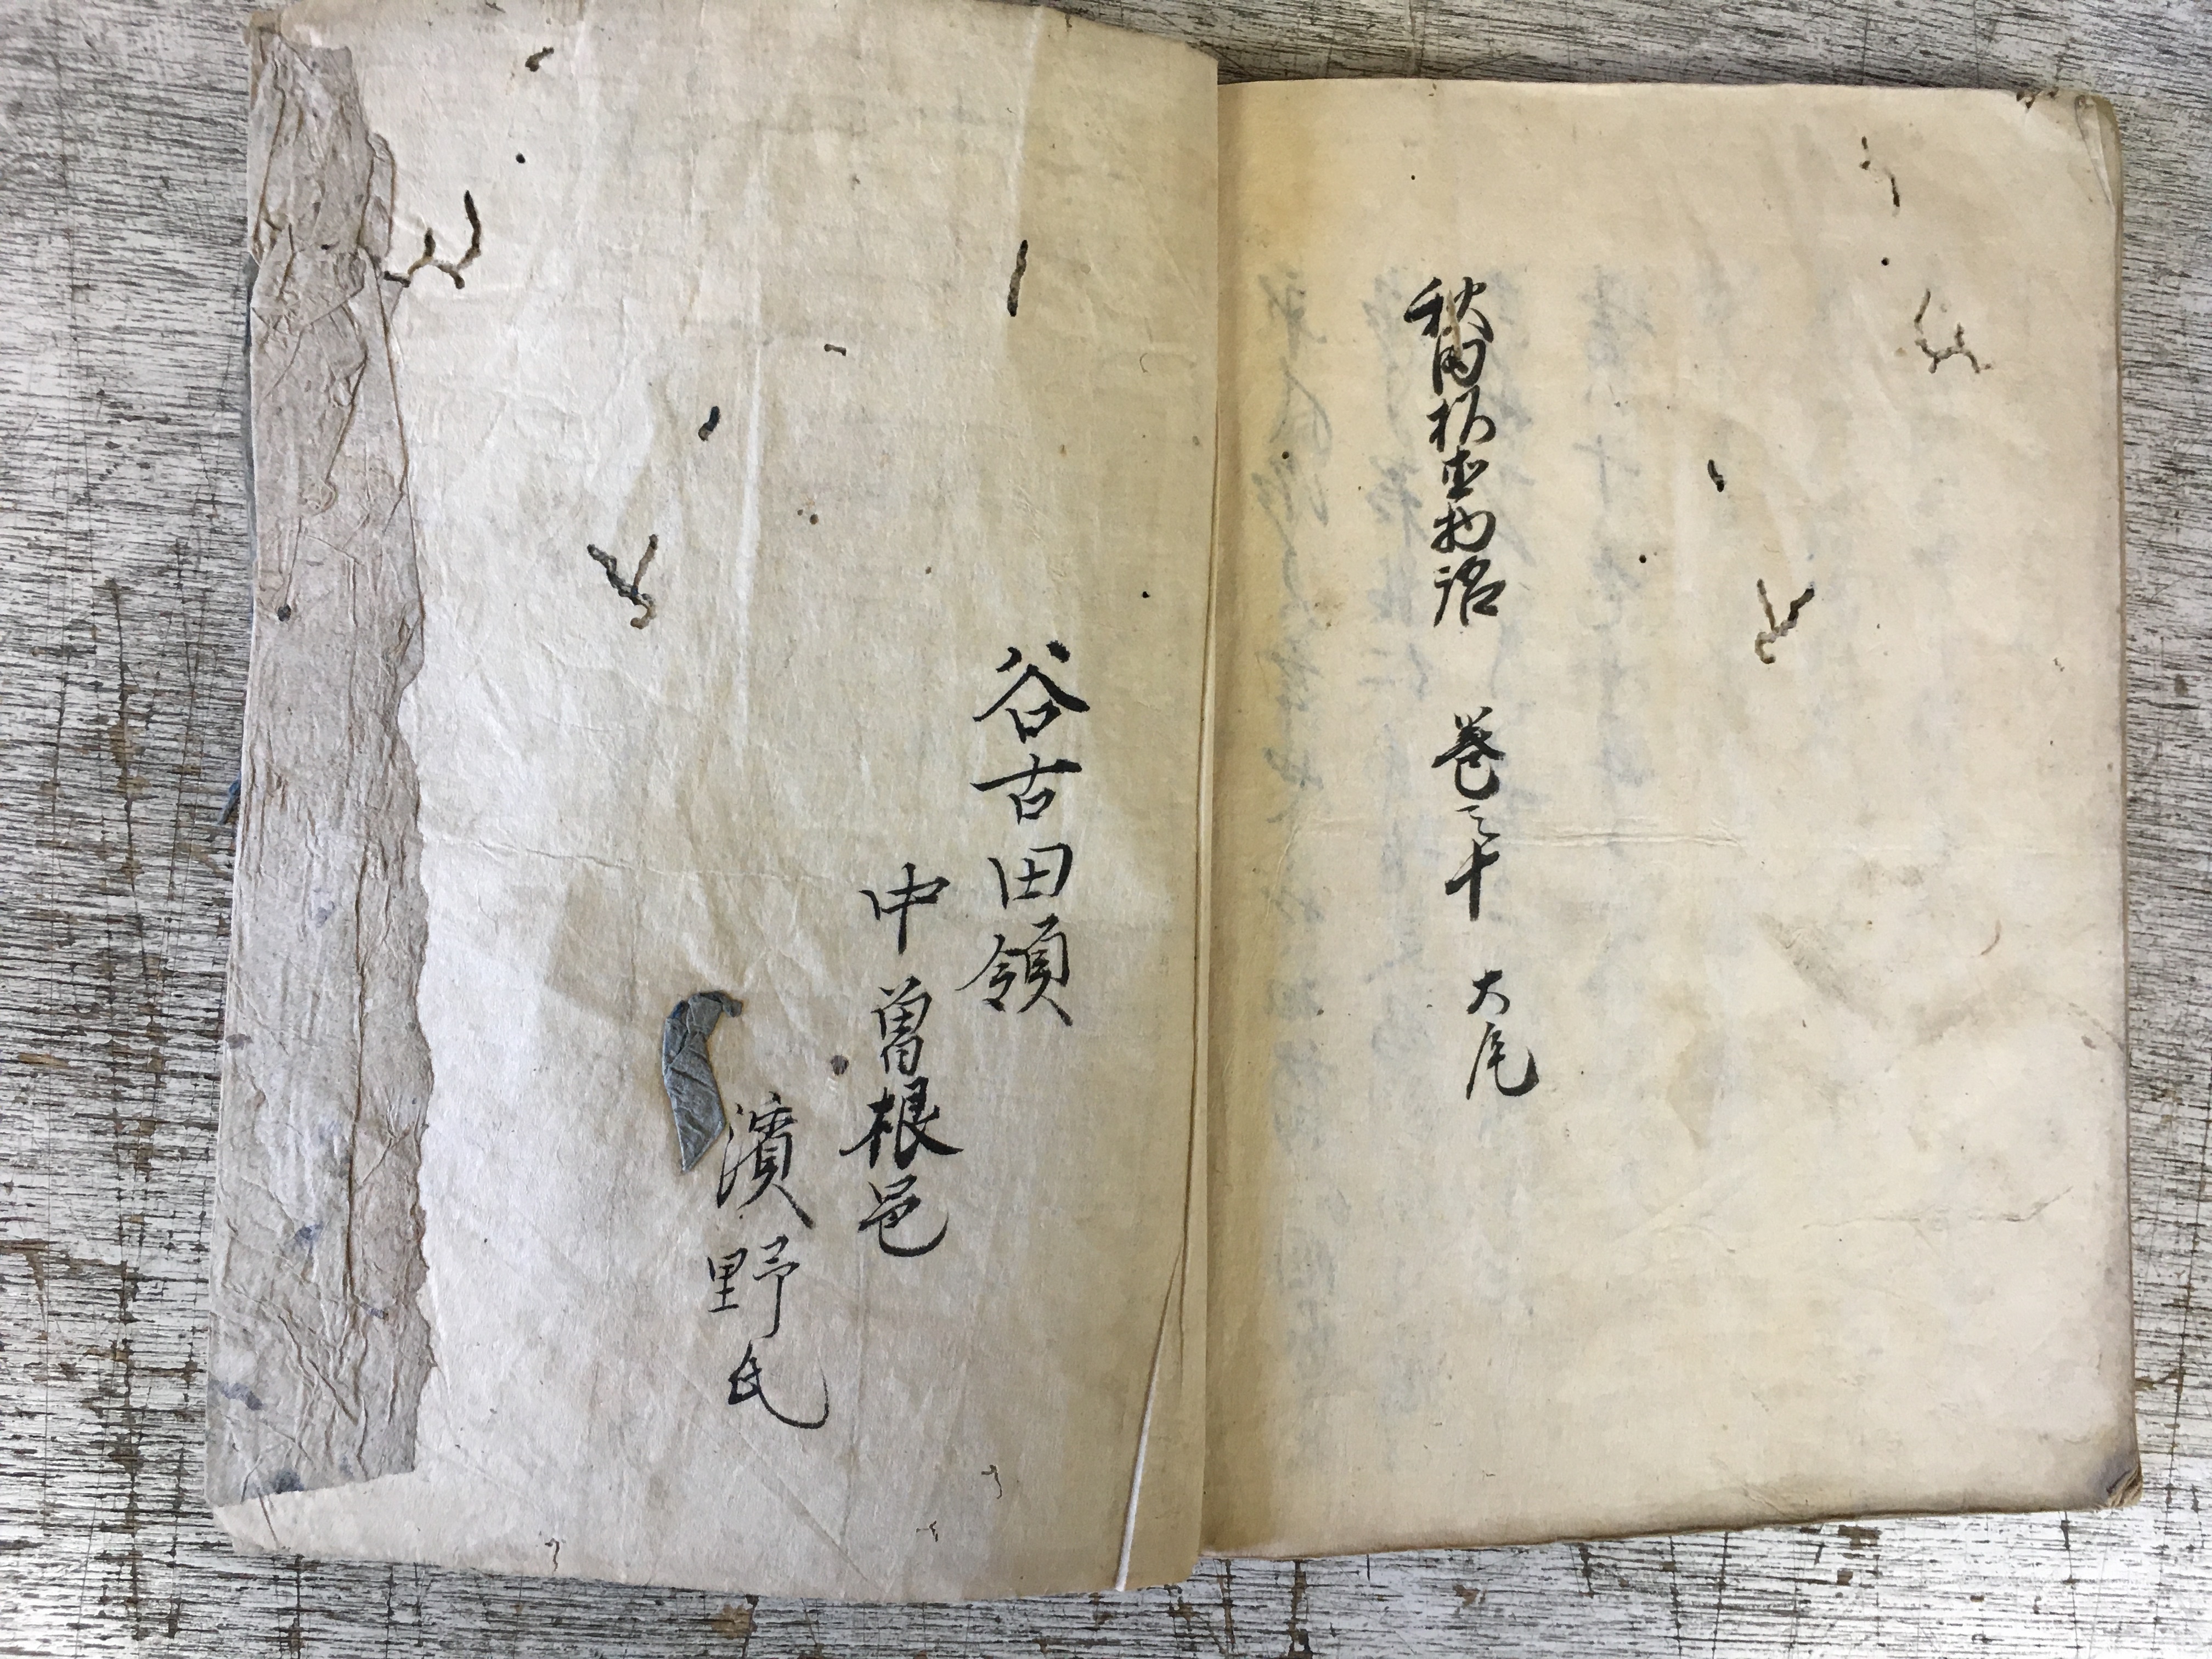 秋田杉直物語 巻之十 大尾
谷古田領
中曽根邑
濱野氏